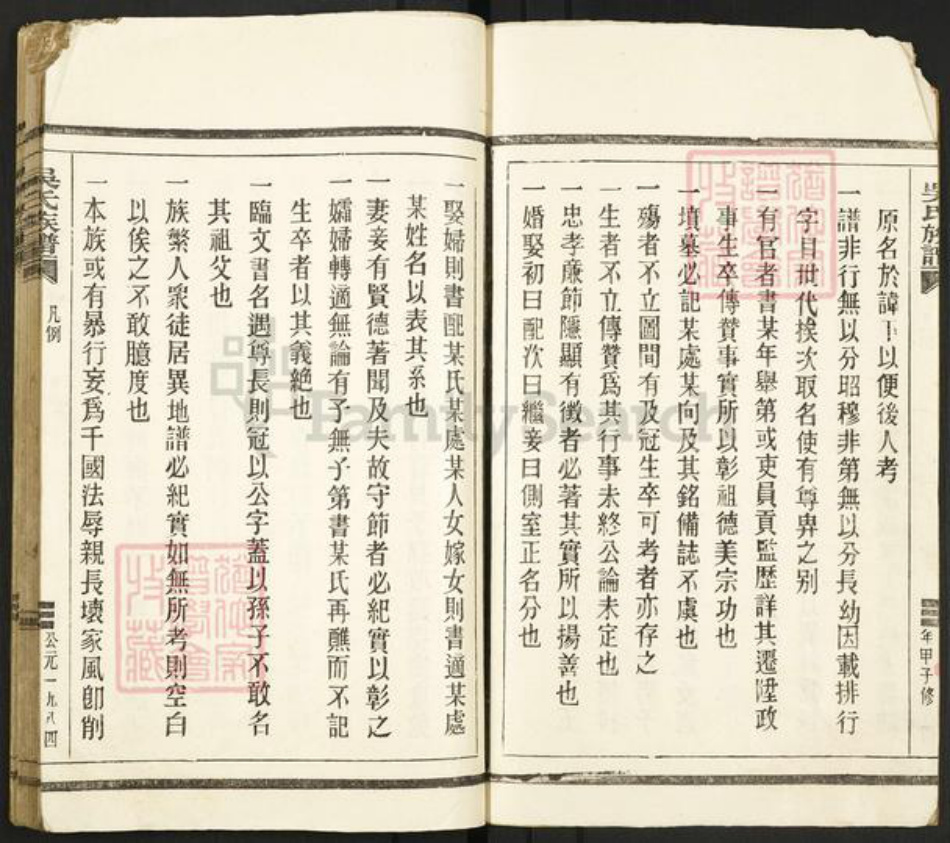 吳氏族譜
年甲子修
原名於諱下以便後人考
一譜非行無以分昭穆非第無以分長幼因載排行
字目世代挨次取名使有尊卑之别
一有官者書某年舉第或吏員貢監歷詳其遷陞政
事生卒傳贊事實所以彰祖德美宗功也
一墳墓必記某處某向及其銘備誌不虞也
一殤者不立圖間有及冠生卒可考者亦存之
一生者不立傳贊爲其行事未終公論未定也
一忠孝廉節隱顯有徵者必著其實所以揚善也
一婚娶初曰配次曰繼妾曰側室正名分也
一娶婦則書配某氏某處某人女嫁女則書適某處
某姓名以表其系也
一妻妾有賢德著聞及夫故守節者必紀實以彰之
一孀婦轉適無論有子無子第書某氏再醮而不記
生卒者以其義絶也
一臨文書名遇尊長則冠以公字蓋以孫子不敢名
其祖父也
一族繁人衆徒居異地譜必紀實如無所考則空白
以俟之不敢臆度也
一本族或有暴行妄爲干國法辱親長壞家風卽削
吳氏族譜
凡例
公元一九八四
FamilySearch